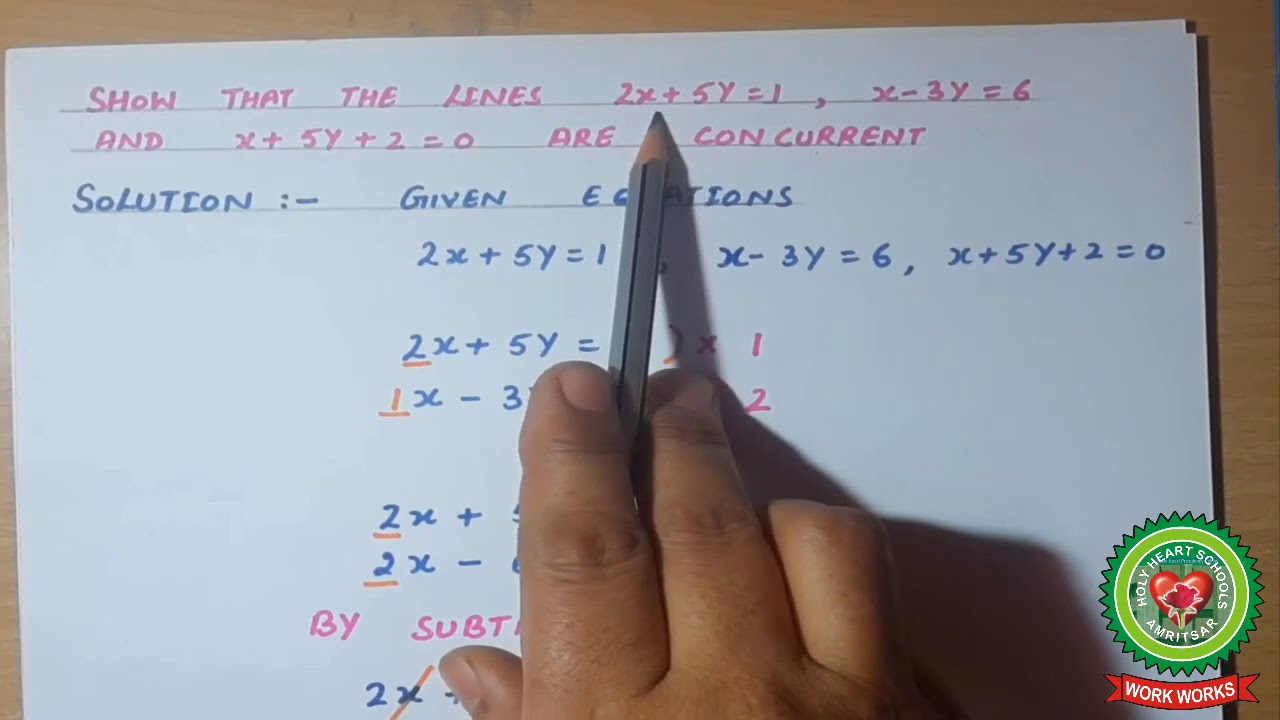 SHOW THAT THE LINES 2x+5Y=1, x-3Y=6
AND x+5Y+2=0 ARE CONCURRENT
SOLUTION :- GIVEN
2x+5Y=1, x-3Y=6, x+5Y+2=0
2x+5Y= x 1
1x-3 2
2x+
2x-
BY
2x
HOLY HEART SCHOOLS
AMRITSAR
WORK WORKS